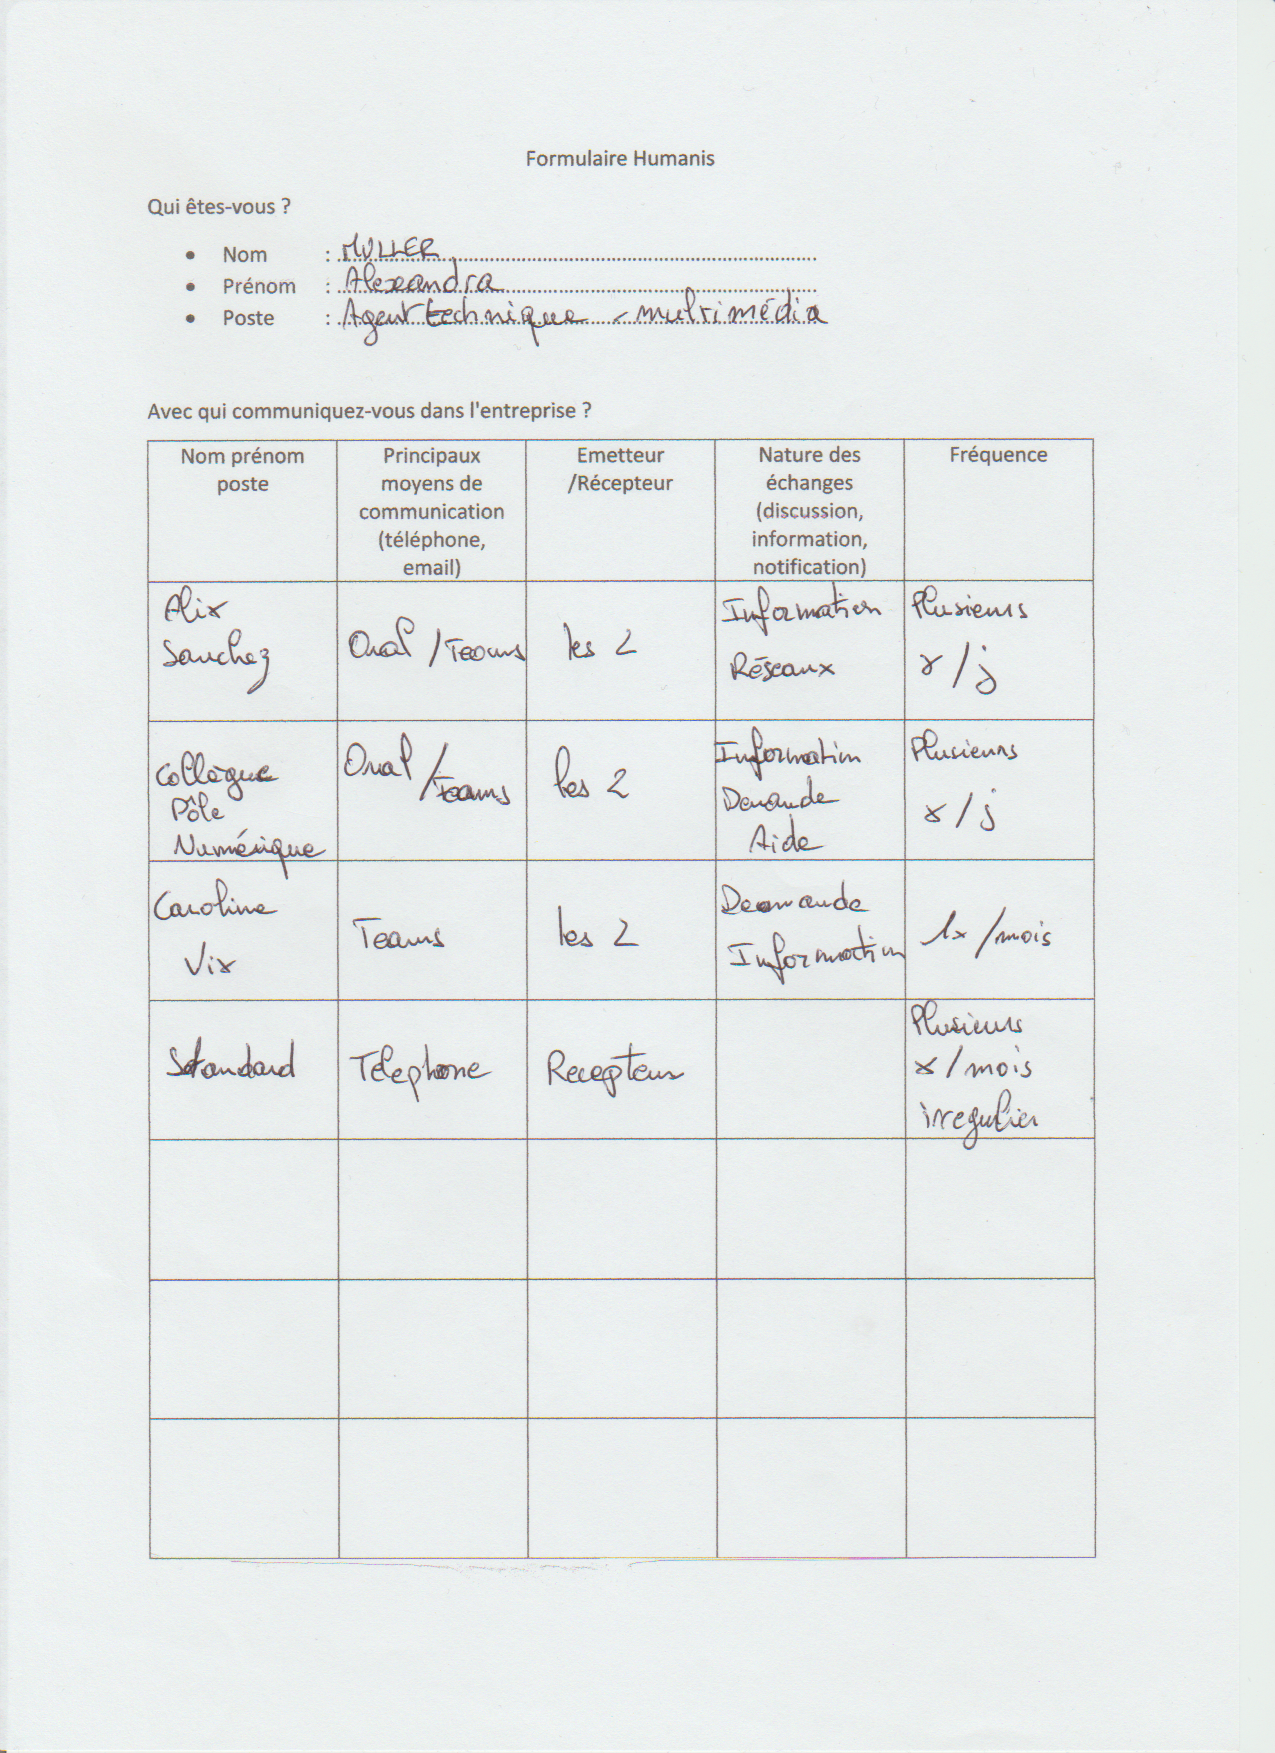 Formulaire Humanis
Qui êtes-vous ?
• Nom : MULLER
• Prénom : Alexandra
• Poste : Agent technique - multimédia
Avec qui communiquez-vous dans l'entreprise ?
Nom prénom
poste
Principaux
moyens de
communication
(téléphone,
email)
Emetteur
/Récepteur
Nature des
échanges
(discussion,
information,
notification)
Fréquence
Alix
Sanchez
Oral / Teams
les 2
Information
Réseaux
Plusieurs
x / j
Collègue
Pôle
Numérique
Oral / Teams
les 2
Information
Demande
Aide
Plusieurs
x / j
Caroline
Vix
Teams
les 2
Demande
Information
1x / mois
Standard
Téléphone
Recepteur
Plusieurs
x / mois
irregulier